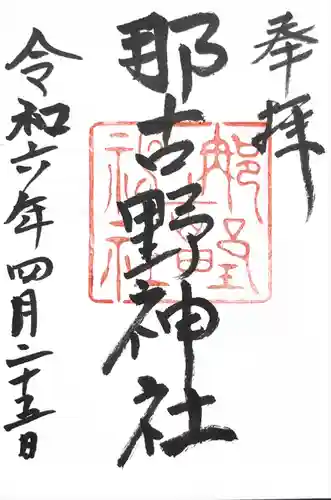 奉拝
那古野神社
令和六年四月二十五日